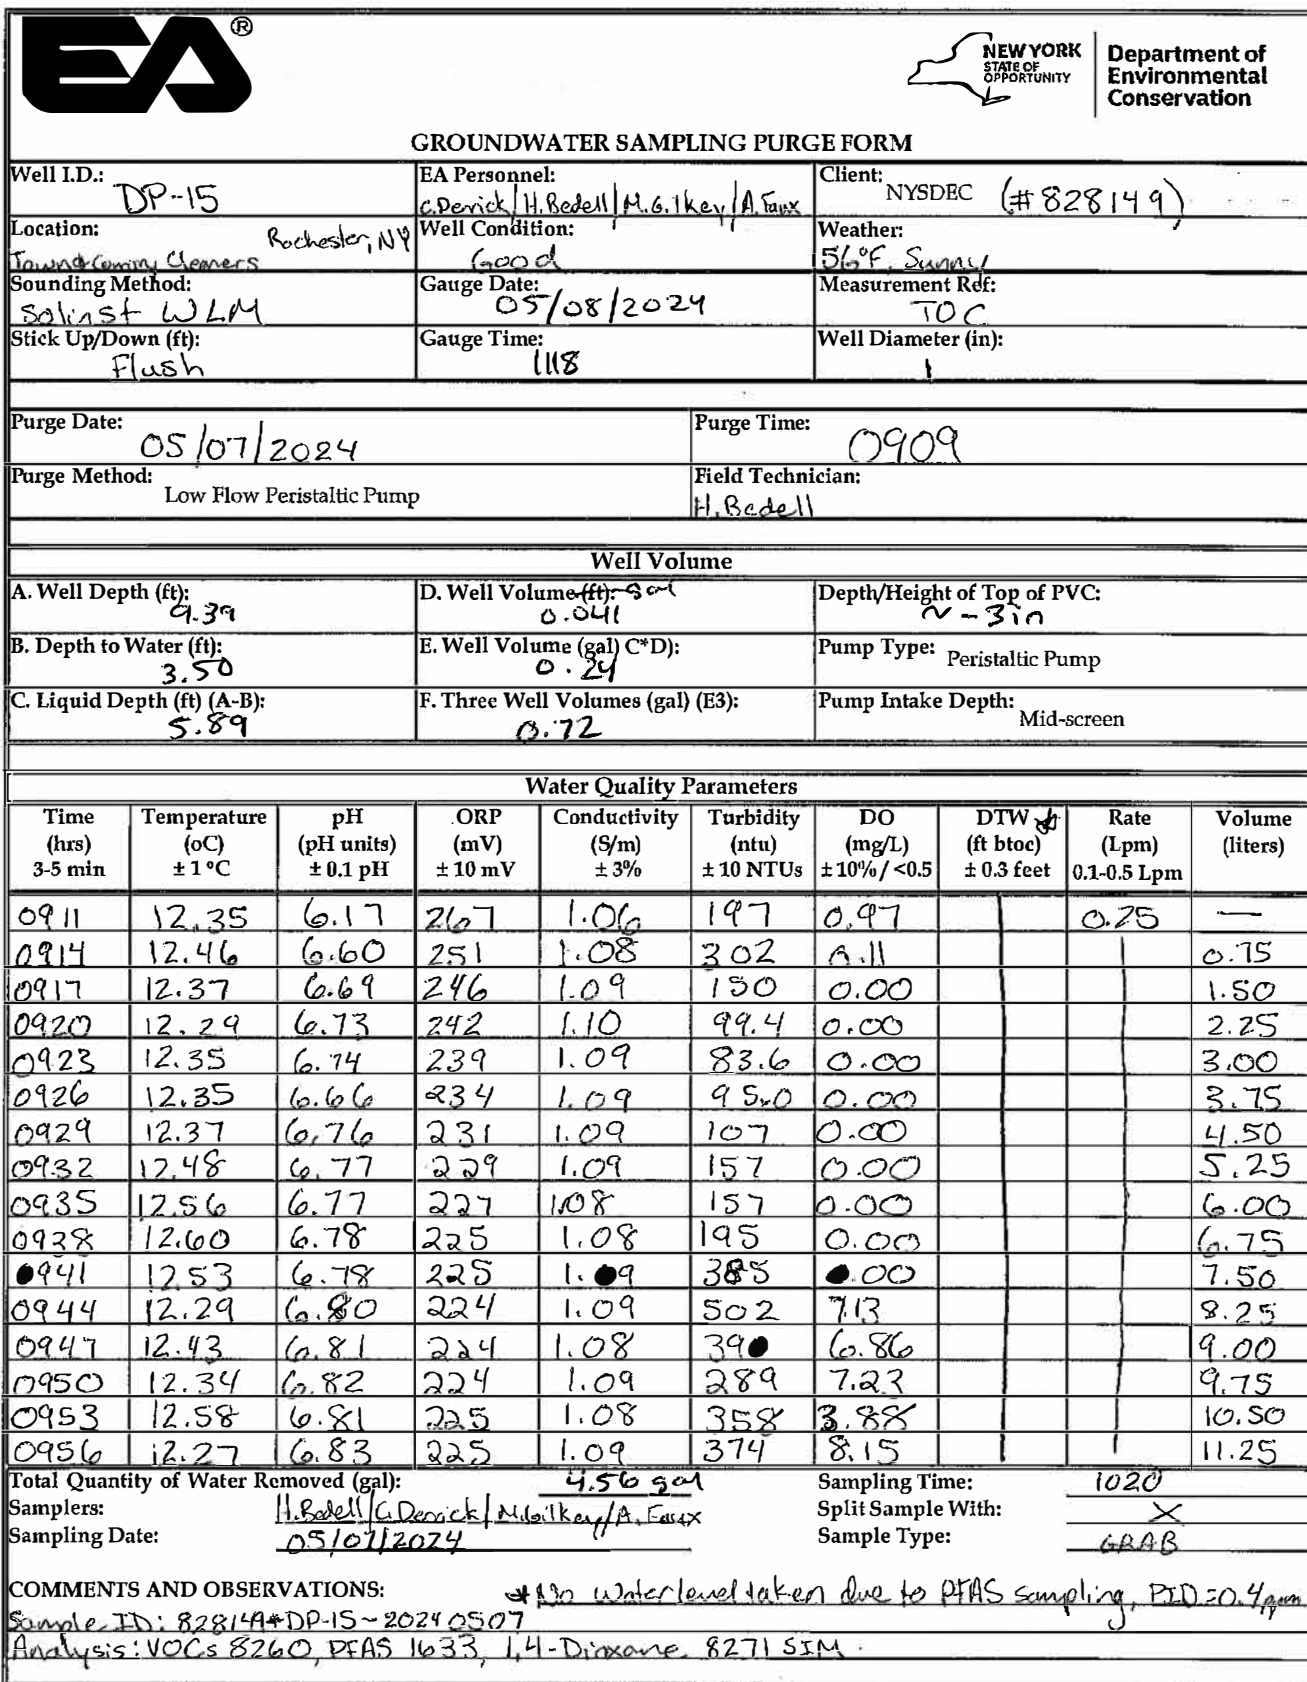 EA®
NEW YORK STATE OF OPPORTUNITY
Department of Environmental Conservation
GROUNDWATER SAMPLING PURGE FORM
Well I.D.: DP-15
EA Personnel: C.Derrick/H.Bedell/M.Gilkey/A.Faux
Client: NYSDEC (#828149)
Location: Rochester, NY
Town & Cleaners
Well Condition: Good
Weather: 56°F, Sunny
Sounding Method: Solinst WLM
Gauge Date: 05/08/2024
Measurement Ref: TOC
Stick Up/Down (ft): Flush
Gauge Time: 1118
Well Diameter (in): 1
Purge Date: 05/07/2024
Purge Time: 0909
Purge Method: Low Flow Peristaltic Pump
Field Technician: H.Bedell
Well Volume
A. Well Depth (ft): 9.39
D. Well Volume (ft): gal 0.041
Depth/Height of Top of PVC: ~ -3in
B. Depth to Water (ft): 3.50
E. Well Volume (gal) C*D): 0.24
Pump Type: Peristaltic Pump
C. Liquid Depth (ft) (A-B): 5.89
F. Three Well Volumes (gal) (E3): 0.72
Pump Intake Depth: Mid-screen
Water Quality Parameters
Time Temperature pH ORP Conductivity Turbidity DO DTW * Rate Volume
(hrs) (oC) (pH units) (mV) (S/m) (ntu) (mg/L) (ft btoc) (Lpm) (liters)
3-5 min ± 1 °C ± 0.1 pH ± 10 mV ± 3% ± 10 NTUs ± 10% / <0.5 ± 0.3 feet 0.1-0.5 Lpm
0911 12.35 6.17 267 1.06 197 0.97 0.25 —
0914 12.46 6.60 251 1.08 302 0.11 0.75
0917 12.37 6.69 246 1.09 150 0.00 1.50
0920 12.29 6.73 242 1.10 99.4 0.00 2.25
0923 12.35 6.74 239 1.09 83.6 0.00 3.00
0926 12.35 6.66 234 1.09 95.0 0.00 3.75
0929 12.37 6.76 231 1.09 107 0.00 4.50
0932 12.48 6.77 229 1.09 157 0.00 5.25
0935 12.56 6.77 227 1.08 157 0.00 6.00
0938 12.60 6.78 225 1.08 195 0.00 6.75
0941 12.53 6.78 225 1.09 385 0.00 7.50
0944 12.29 6.80 224 1.09 502 7.13 8.25
0947 12.43 6.81 224 1.08 390 6.86 9.00
0950 12.34 6.82 224 1.09 289 7.23 9.75
0953 12.58 6.81 225 1.08 358 3.88 10.50
0956 12.27 6.83 225 1.09 374 8.15 11.25
Total Quantity of Water Removed (gal): 4.56 gal
Sampling Time: 1020
Samplers: H.Bedell/C.Derrick/M.Gilkey/A.Faux
Split Sample With: X
Sampling Date: 05/07/2024
Sample Type: GRAB
COMMENTS AND OBSERVATIONS: * No water level taken due to PFAS sampling, PID=0.4ppm
Sample ID: 828149-DP-15-20240507
Analysis: VOCs 8260, PFAS 1633, 1,4-Dioxane 8271 SIM.